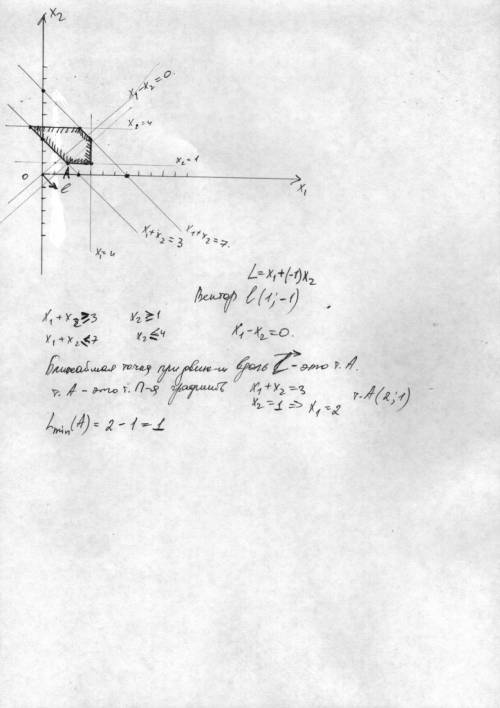 x₂
x₁-x₂=0.
x₂=4
x₂=1
0
A
l
x₁
x₁+x₂=3
x₁+x₂=7.
x₁=4
L=x₁+(-1)x₂
Вектор l(1;-1)
x₁+x₂≥3 x₂≥1
x₁+x₂≤7 x₂≤4 x₁-x₂=0.
Ближайшая точка при движ-и вдоль l - это т. A.
т. A - это т. П-я границ x₁+x₂=3
x₂=1 => x₁=2 т. A(2;1)
Lmin(A)=2-1=1